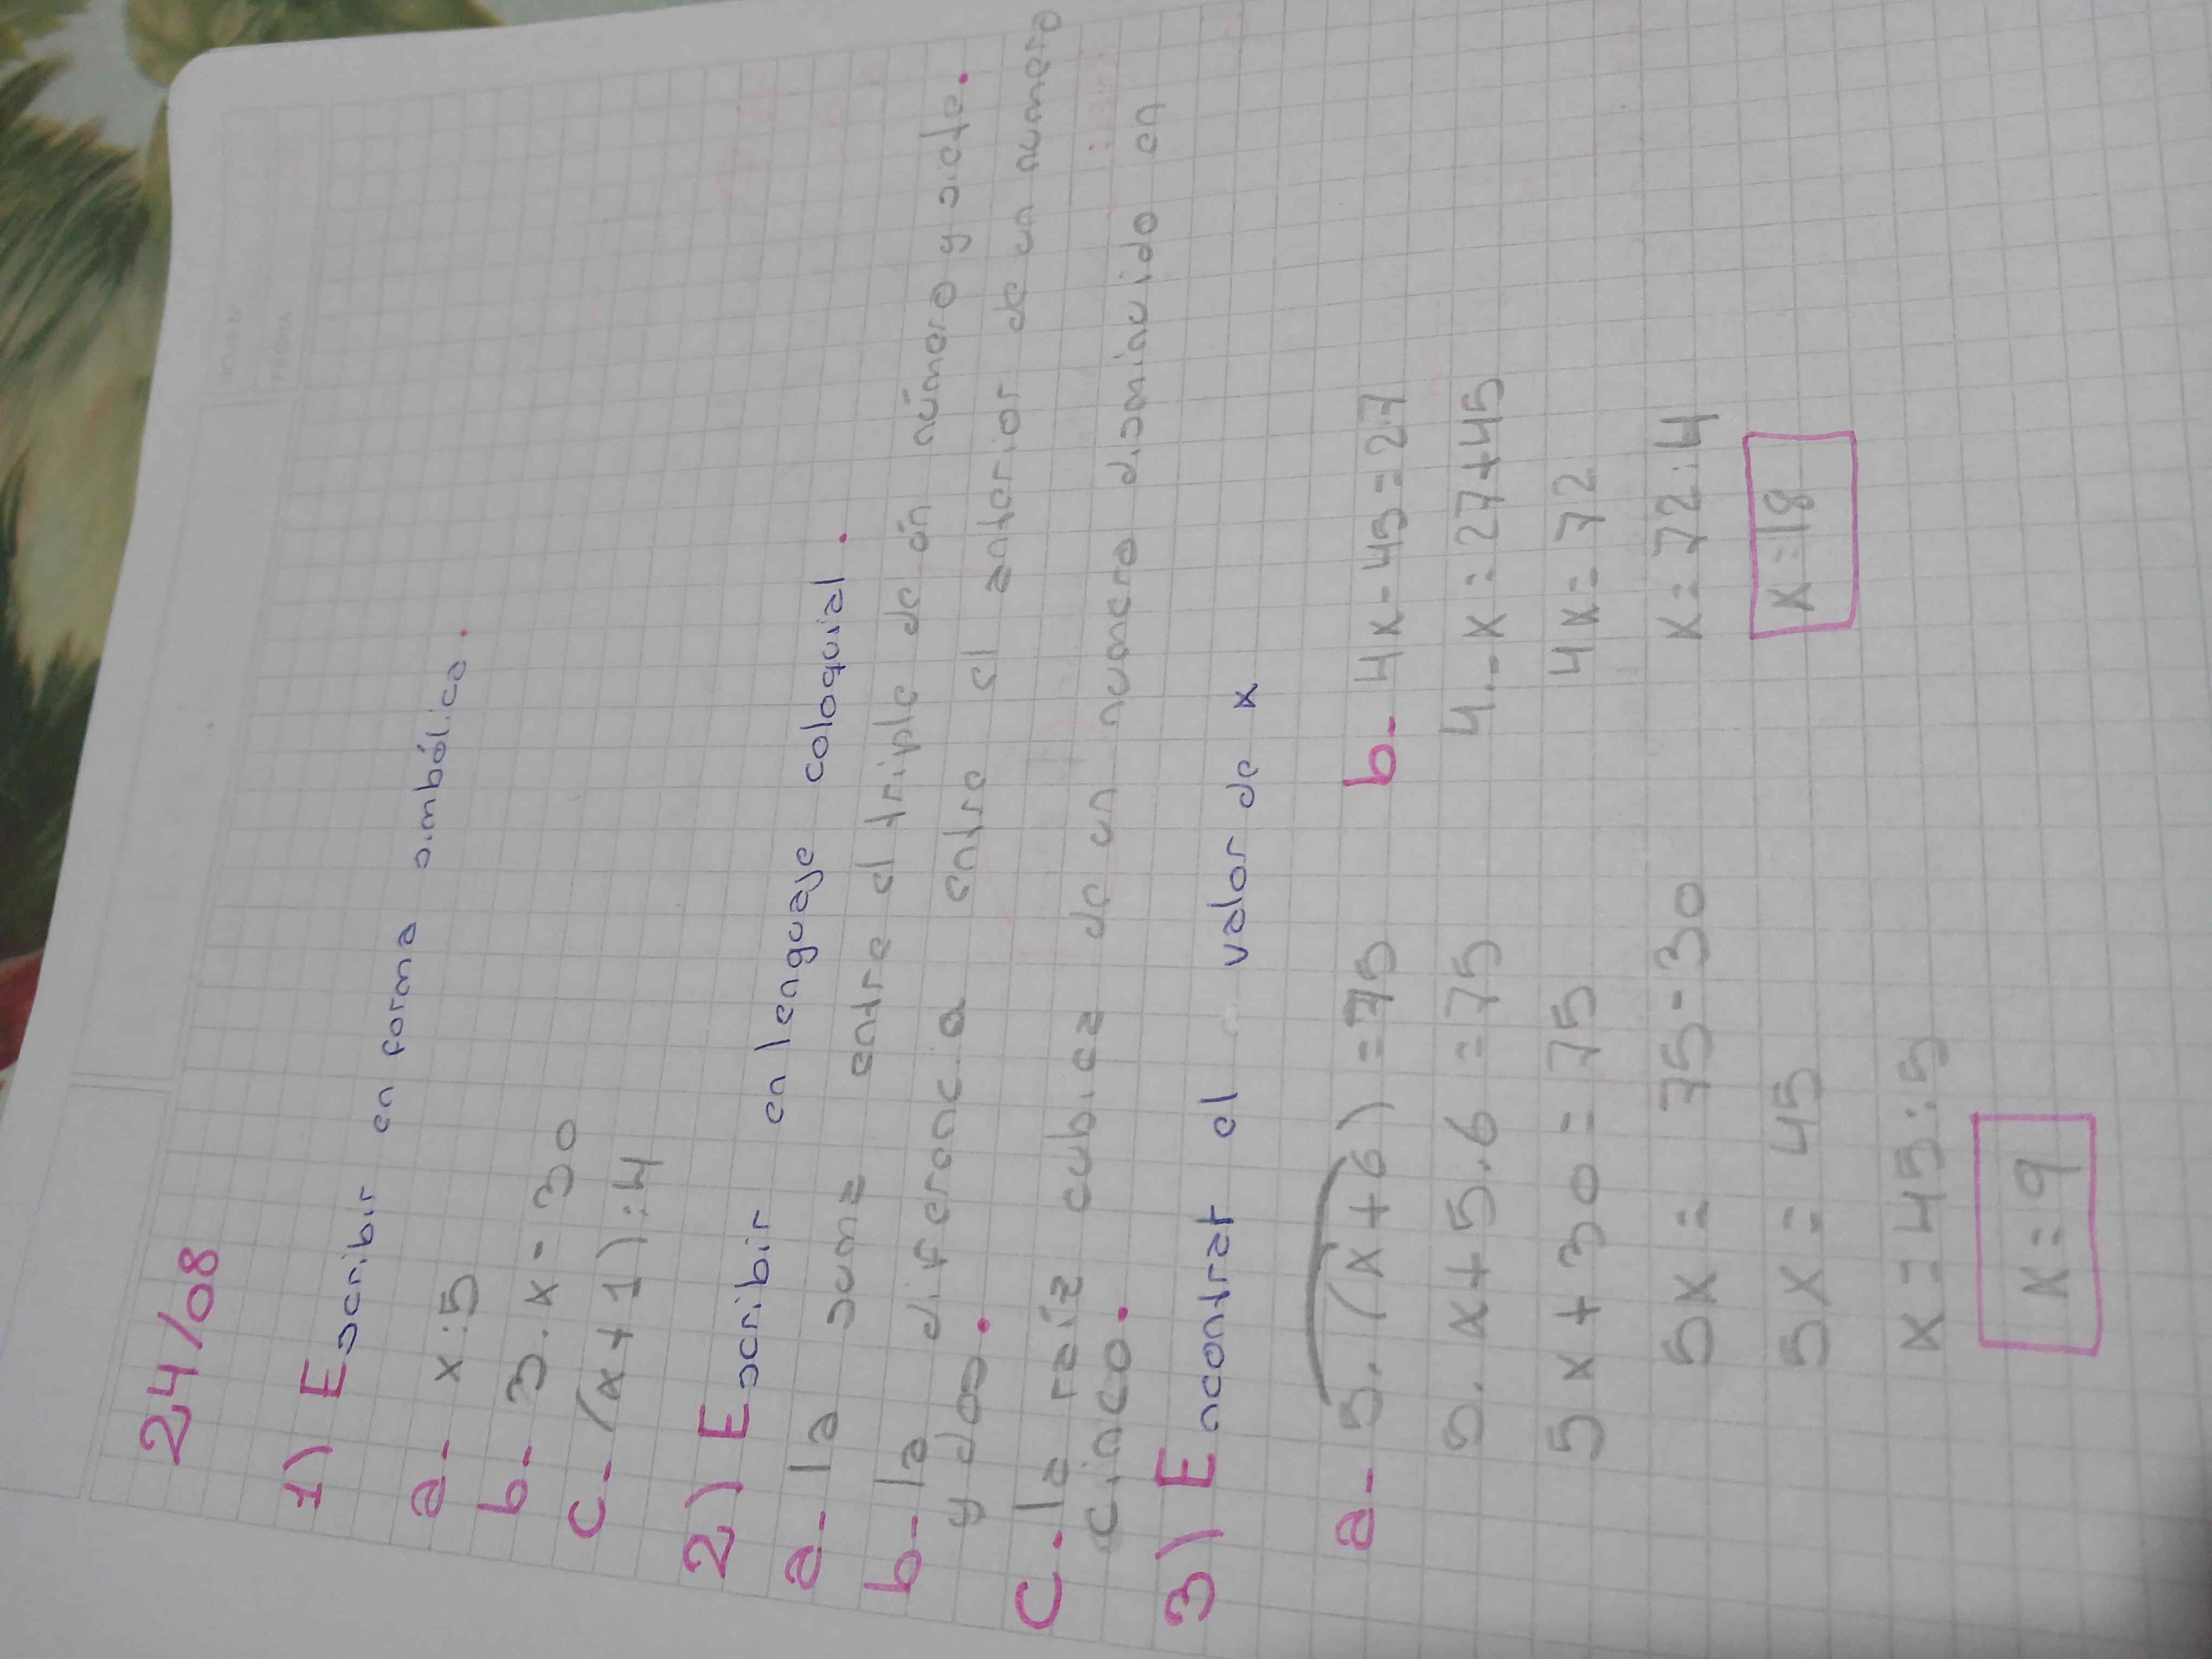 24/08
1) Escribir en forma simbólica.
a- x:5
b- 3.x-30
c- (x+1):4
2) Escribir en lenguaje coloquial.
a- la suma entre el triple de un número y siete.
b- la diferencia entre el anterior de un numero
y dos.
c. la raíz cubica de un numero disminuido en
cinco.
3) Encontrar el valor de x
a- 5.(x+6)=75
5.x+5.6=75
5x+30=75
5x= 75-30
5x=45
x=45:5
x=9
b- 4x-45=27
4.-x=27+45
4x=72
x=72:4
x=18